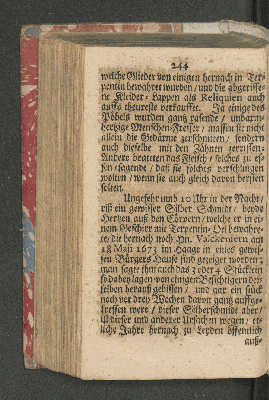 244
welche Glieder von einigen hernach in Ter-
pentin bewahret wurden / und die abgerisse-
ne Kleider-Lappen als Reliquien auch
auffs theureste verkauffet. Ja einige des
Pöbels wurden gantz rasende / unbarm-
hertzige Menschen-Fresser / massen sie nicht
allein die Gedärme zerschnitten / sondern
auch dieselbe mit den Zähnen zerrissen.
Andere brateten das Fleisch / solches zu es-
sen / sagende / daß sie solches verschlingen
wolten / wenn sie auch gleich davon bersten
solten.
Ungefehr umb 10 Uhr in der Nacht /
riß ein gewisser Silber Schmidt / beyde
Hertzen auß den Cörpern / welche er in ei-
nem Geschirr mit Terpentin-Oel bewahre-
te / die hernach noch Hn. Valckeniern am
18 Maji 1673 im Haage in eines gewis-
sen Bürgers Hause sind gezeiget worden;
man sagte ihm auch das 3 oder 4 Stück rein
so dabey lagen von einigen Besichtigern der-
selben herauß gebissen / und gar ein stück
noch vor drey Wochen davon gantz auffge-
fressen were / dieser Silberschmidt aber /
ist dieser und anderer Ursachen wegen / et-
liche Jahre hernach zu Leyden öffentlich
auß-